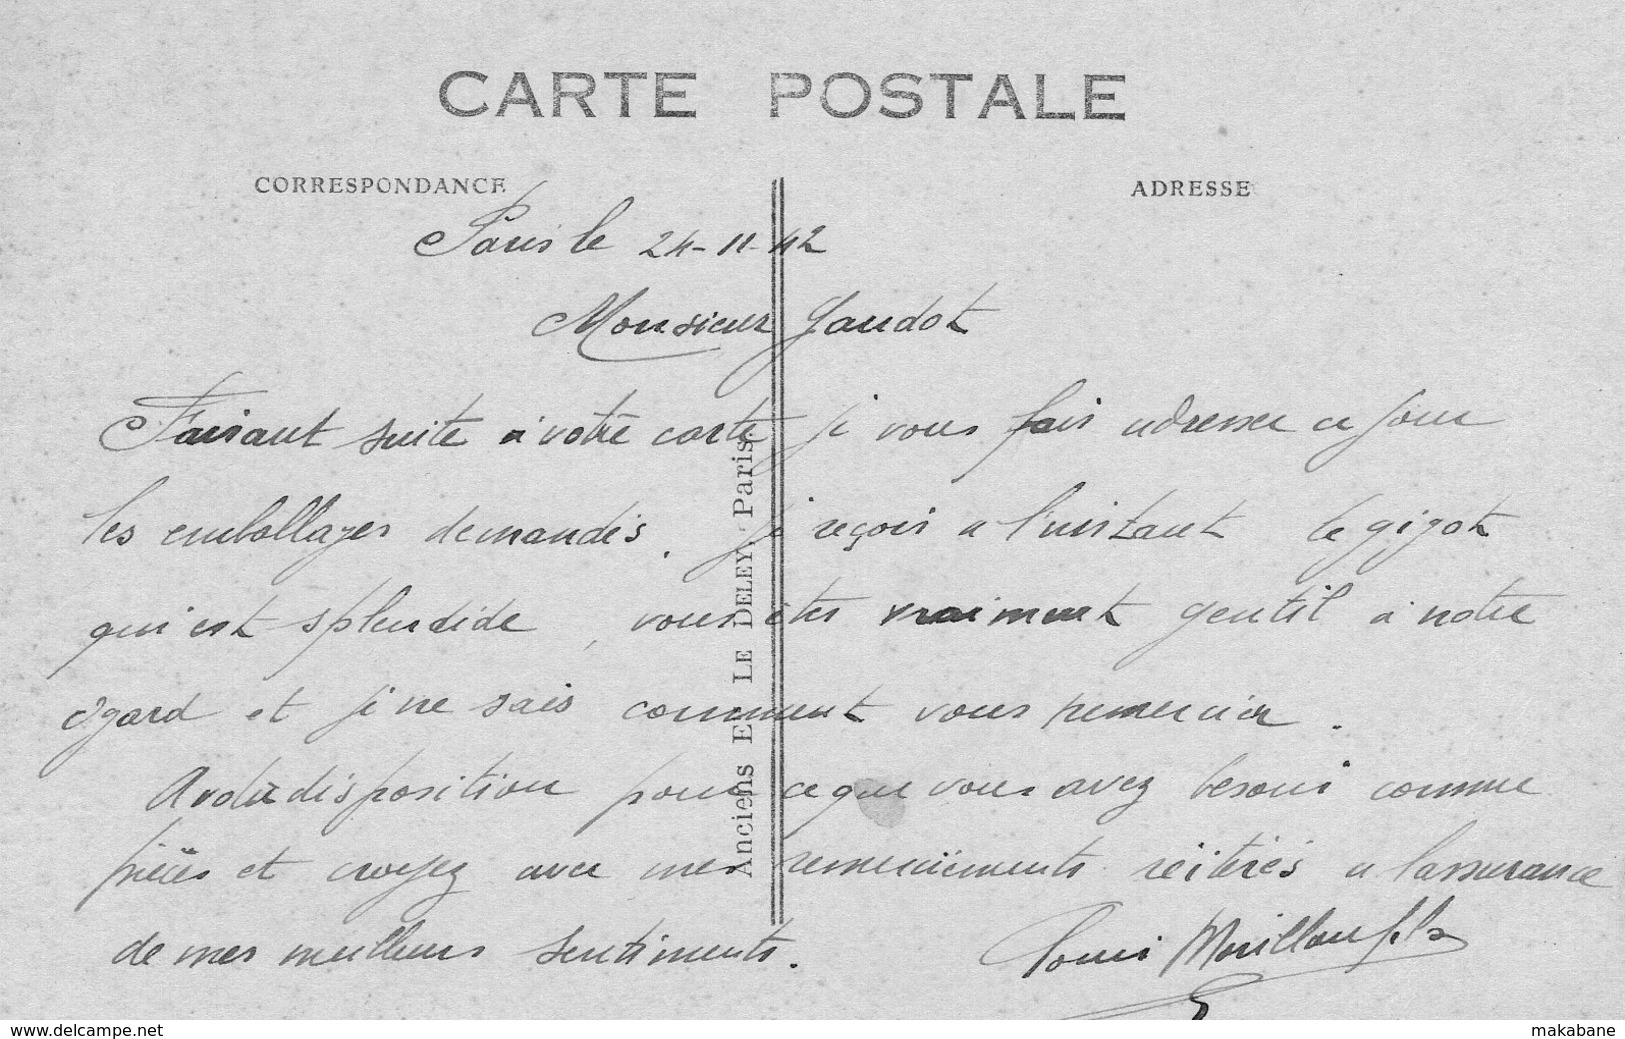 CARTE POSTALE
CORRESPONDANCE
ADRESSE
Paris le 24-11-42
Monsieur Gaudot
Faisant suite à votre carte je vous fais adresser ce jour
les emballages demandés. Je reçois a l'instant le gigot
qui est splendide, vous êtes vraiment gentil a notre
égard et je ne sais comment vous remercier.
A votre disposition pour ce que vous avez besoin comme
pièces et croyez avec mes remerciements réitérés a l'assurance
de mes meilleurs sentiments.
Louis fils
Anciens E LE DELEY, Paris.
www.delcampe.net
makabane